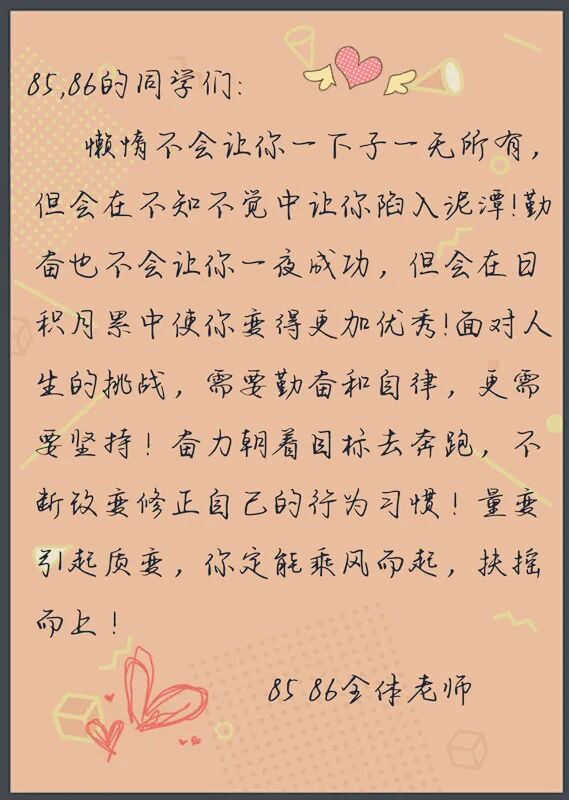 85,86的同学们:
懒惰不会让你一下子一无所有,
但会在不知不觉中让你陷入泥潭!勤
奋也不会让你一夜成功,但会在日
积月累中使你变得更加优秀!面对人
生的挑战,需要勤奋和自律,更需
要坚持!奋力朝着目标去奔跑,不
断改变修正自己的行为习惯!量变
引起质变,你定能乘风而起,扶摇
而上!
85 86全体老师